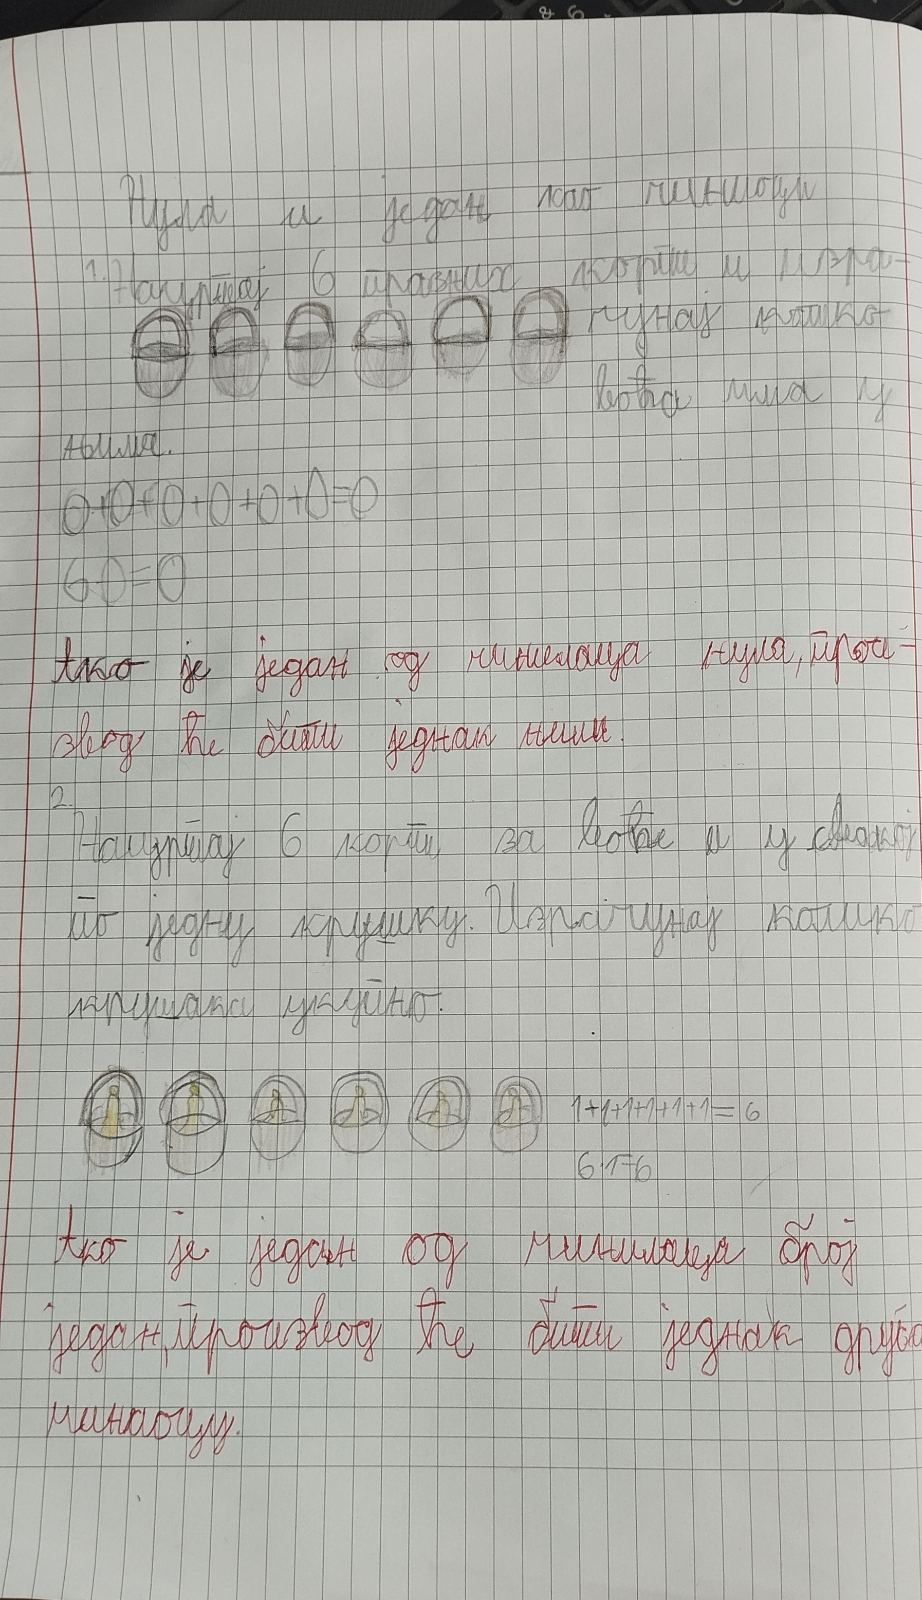 Нула и један као чиниоци
1. Нацртај 6 празних корпи и изра-
чунај колико
воћа има у
њима.
0+0+0+0+0+0=0
6·0=0
Ако је један од чинилаца нула, прои-
звод ће бити једнак нули.
2.
Нацртај 6 корпи за воће и у свакој
по једну крушку. Израчунај колико
крушака укупно.
1+1+1+1+1+1=6
6·1=6
Ако је један од чинилаца број
један, производ ће бити једнак
чиниоцу.